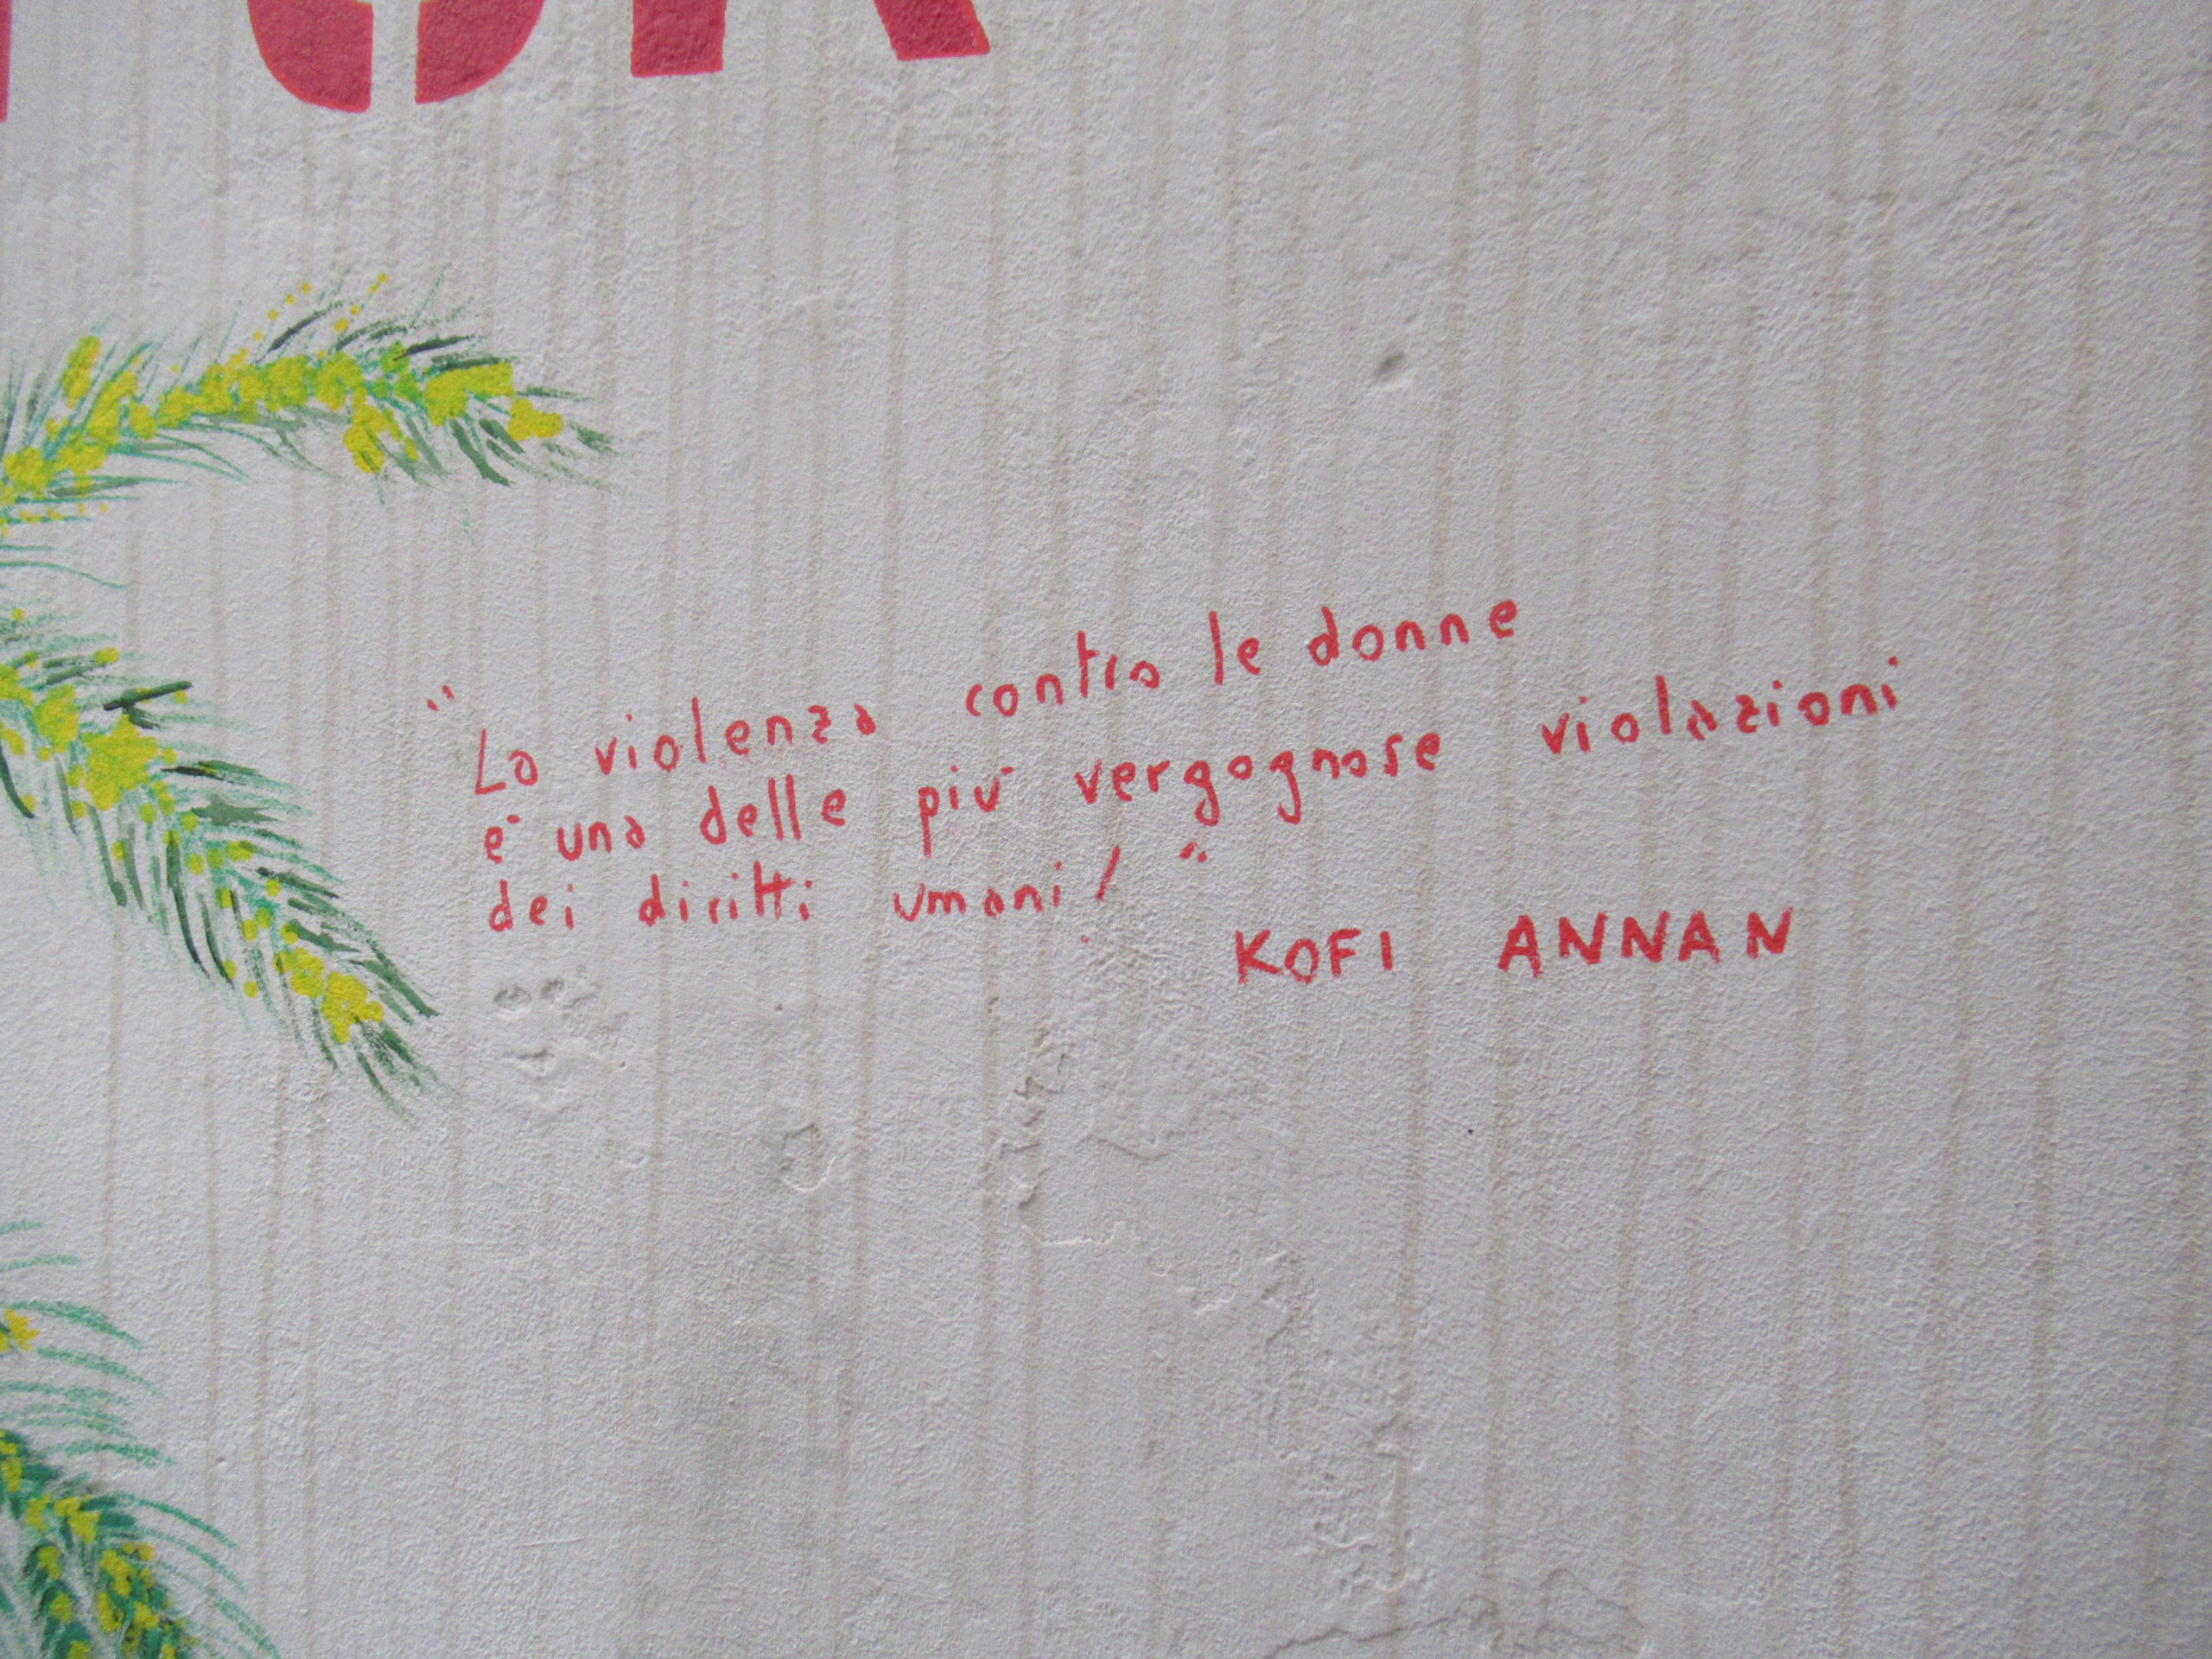 "La violenza contro le donne
è una delle più vergognose violazioni
dei diritti umani!"
KOFI ANNAN